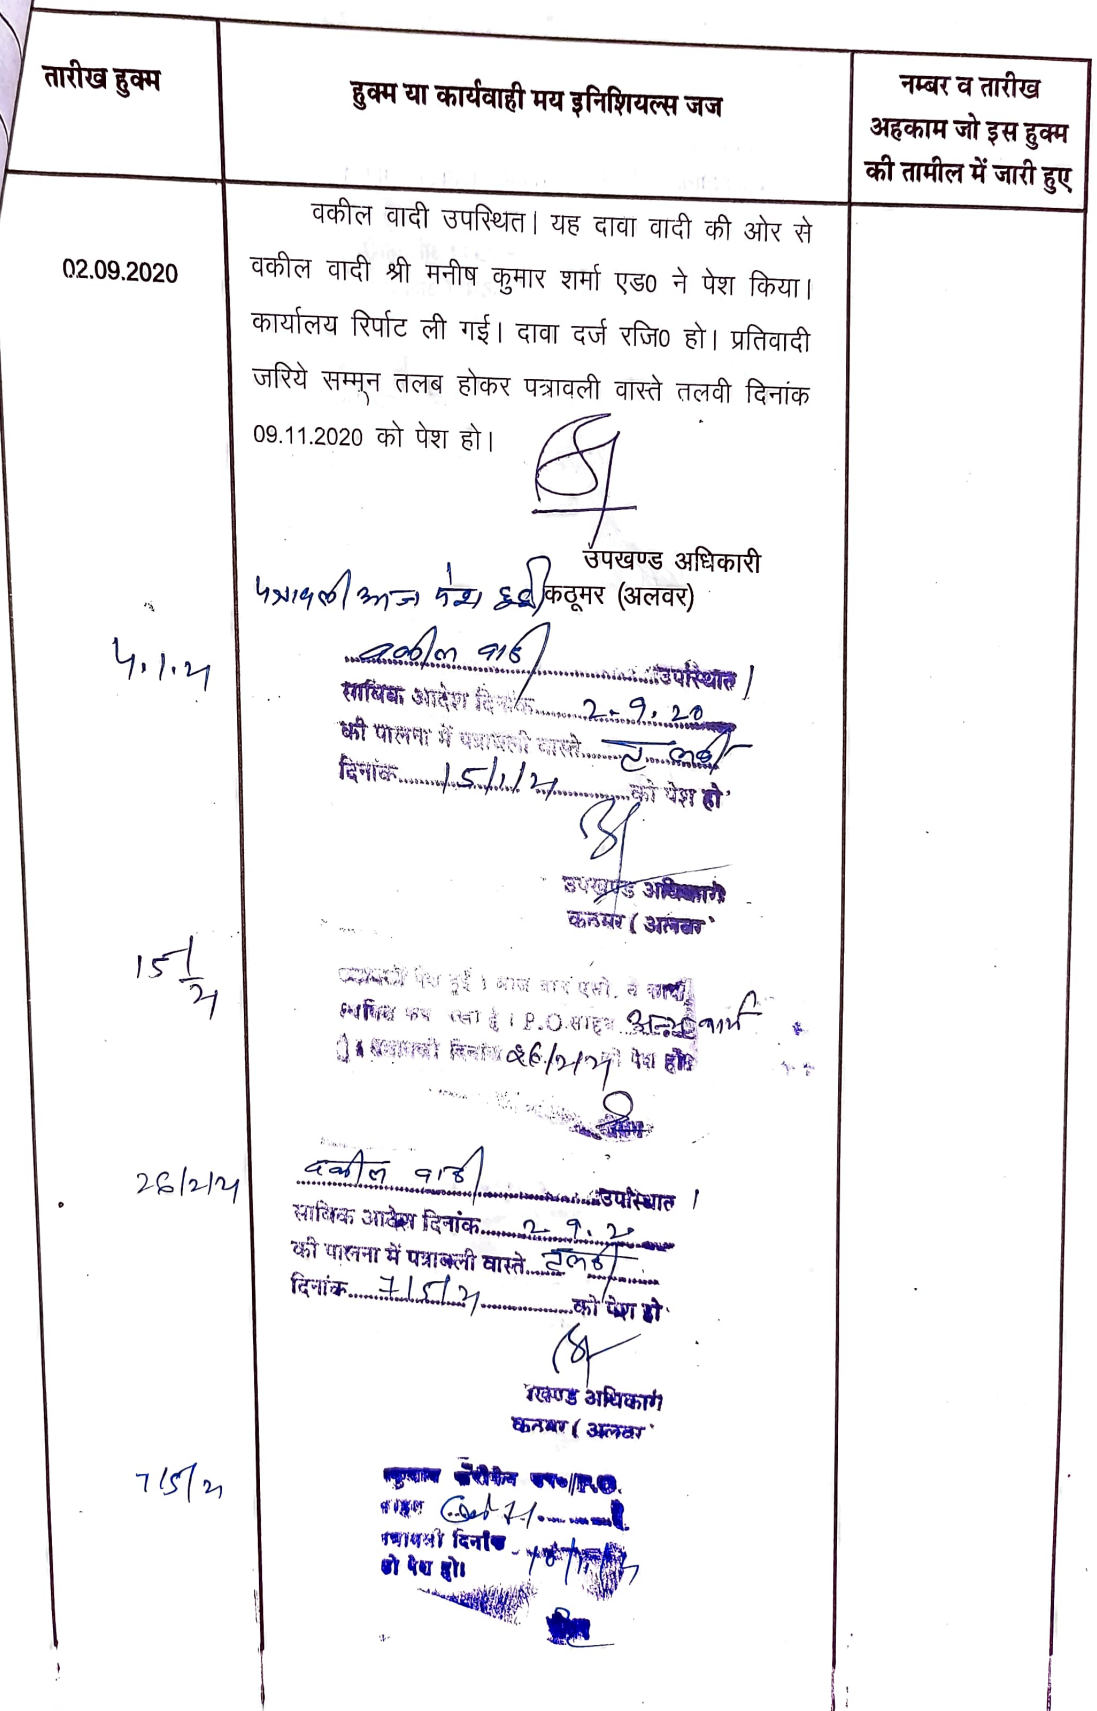 तारीख हुक्म
हुक्म या कार्यवाही मय इनिशियल्स जज
नम्बर व तारीख
अहकाम जो इस हुक्म
की तामील में जारी हुए
02.09.2020
वकील वादी उपस्थित। यह दावा वादी की ओर से
वकील वादी श्री मनीष कुमार शर्मा एड0 ने पेश किया।
कार्यालय रिर्पाट ली गई। दावा दर्ज रजि0 हो। प्रतिवादी
जरिये सम्मन तलब होकर पत्रावली वास्ते तलवी दिनांक
09.11.2020 को पेश हो।
उपखण्ड अधिकारी
कठूमर (अलवर)
पत्रावली आज पेश हुई
वकील वादी उपस्थित।
साबिक आदेश दिनांक 2.9.20
की पालना में पत्रावली वास्ते तलवी
दिनांक 15/1/21 को पेश हो
उपखण्ड अधिकारी
कठूमर (अलवर
15/1/21
पेश हुई। आज बार एसो.
P.O. साहब अन्य कार्य
पत्रावली दिनांक 26/2/21 को पेश हो
26/2/21
वकील वादी उपस्थित।
साबिक आदेश दिनांक 2.9.20
की पालना में पत्रावली वास्ते तलवी
दिनांक 7/5/21 को पेश हो
खण्ड अधिकारी
कठूमर (अलवर
7/5/21
P.O.
पत्रावली दिनांक
को पेश हो।